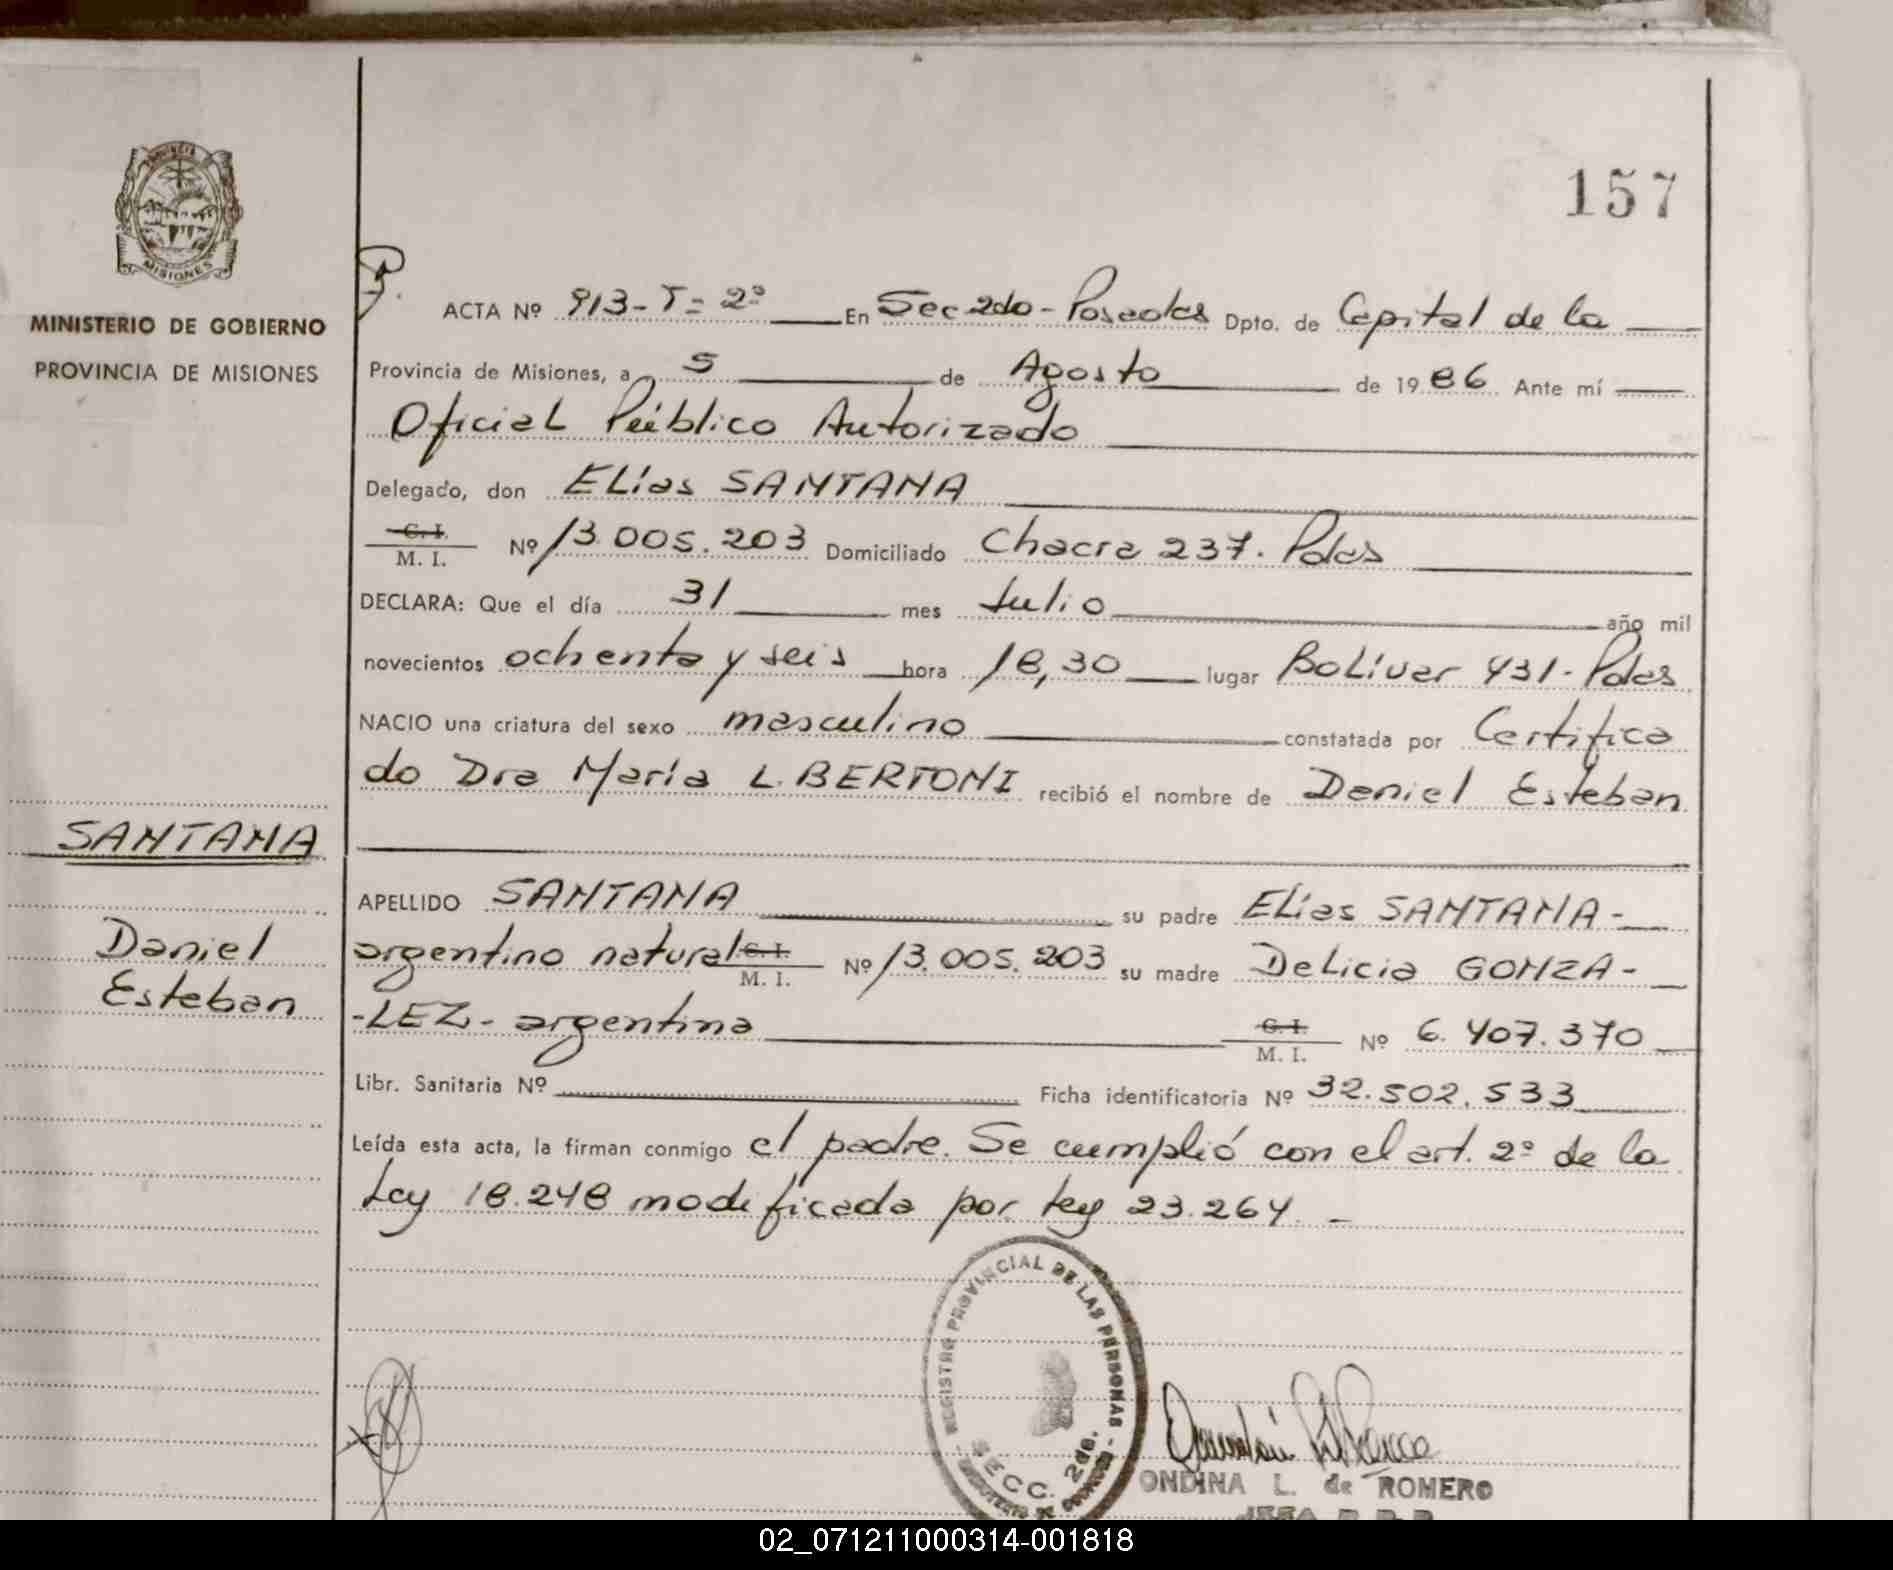 157
PROVINCIA
MISIONES
MINISTERIO DE GOBIERNO
PROVINCIA DE MISIONES
ACTA Nº 913-T=2º En Sec 2do-Posadas Dpto. de Capital de la
Provincia de Misiones, a 5 de Agosto de 1986 Ante mí
Oficial Público Autorizado
Delegado, don Elías SANTANA
C. I.
M. I. Nº 13.005.203 Domiciliado Chacra 237. Pdas
DECLARA: Que el día 31 mes Julio año mil
novecientos ochenta y seis hora 18,30 lugar Bolívar 431-Pdas
NACIO una criatura del sexo masculino constatada por Certifica
do Dra María L. BERTONI recibió el nombre de Daniel Esteban
SANTANA
Daniel
Esteban
APELLIDO SANTANA su padre Elías SANTANA-
argentino natural C. I.
M. I. Nº 13.005.203 su madre Delicia GONZA-
-LEZ- argentina C. I.
M. I. Nº 6.407.370
Libr. Sanitaria Nº Ficha identificatoria Nº 32.502.533
Leída esta acta, la firman conmigo el padre. Se cumplió con el art. 2º de la
Ley 18.248 modificada por ley 23.264. -
REGISTRO PROVINCIAL DE LAS PERSONAS
SECC. 2da.
ONDINA L. de ROMERO
02_071211000314-001818